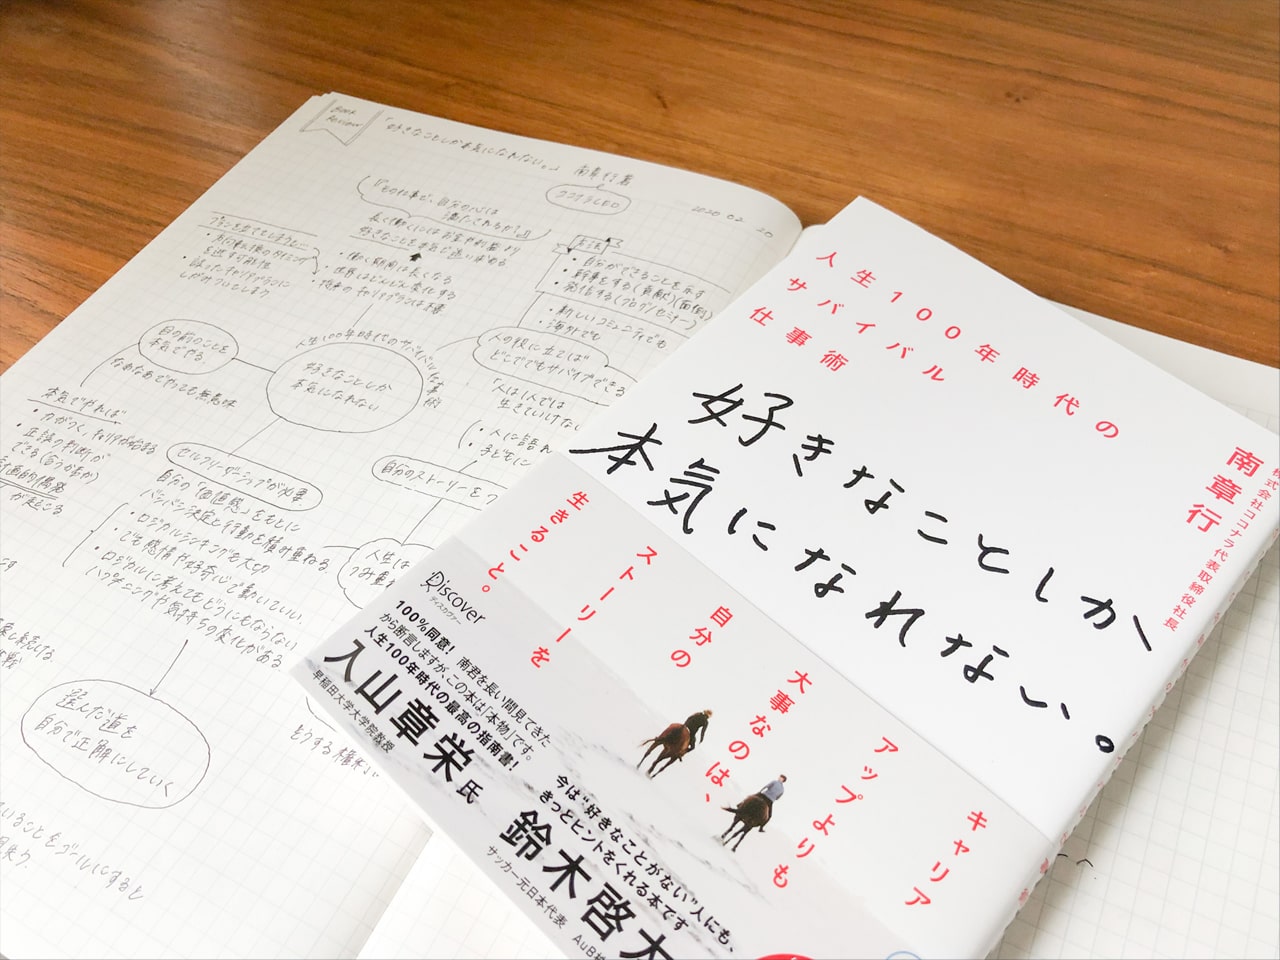 Book
Review
「好きなことしか本気になれない。」
南章行著
ココナラCEO
2020.02
20
「その仕事で、自分の心は
満たされるか?」
長く働くにはお金や肩書より
好きなことを本気で追い求める
・働く期間は長くなる
・世界はどんどん変化する
・将来のキャリアプランは不要
方法
・自分ができることを示す
・幹事をする(貢献)(面倒)
・発信する(ブログ/セミナー)
・新しいコミュニティでも
・海外でも
人の役に立てば
どこででもサバイブできる
「人は1人では
生きていけない
目の前のことを
本気でやる
なあなあでやっても無意味
人生100年時代のサバイバル仕事術
好きなことしか
本気になれない
本気でやれば
・力がつく、キャリアが始まる
・正誤の判断が
できる(合うか否か)
計画的偶発
が起こる
セルフリーダーシップが必要
自分の「価値感」をもとに
バシバシ決定と行動を積み重ねる
・ロジカルシンキングも大切
でも感情や好奇心で動いていい。
・ロジカルに考えてもどうにもならない
ハプニングや気持ちの変化がある
自分のストーリーを
人生は
選んだ道を
自分で正解にしていく
いることをゴールにすると
人生100年時代の
サバイバル
仕事術
好きなことしか
本気になれない。
株式会社ココナラ代表取締役社長
南章行
キャリア
アップよりも
大事なのは、
自分の
ストーリーを
生きること。
Discover
ディスカヴァー
100%同意! 南君を長い間見てきた
から断言しますが、この本は「本物」です。
人生100年時代の最高の指南書!
入山章栄氏
早稲田大学大学院教授
今は"好きなことがない"人にも、
きっとヒントをくれる本です
鈴木啓太
サッカー元日本代表 AuB